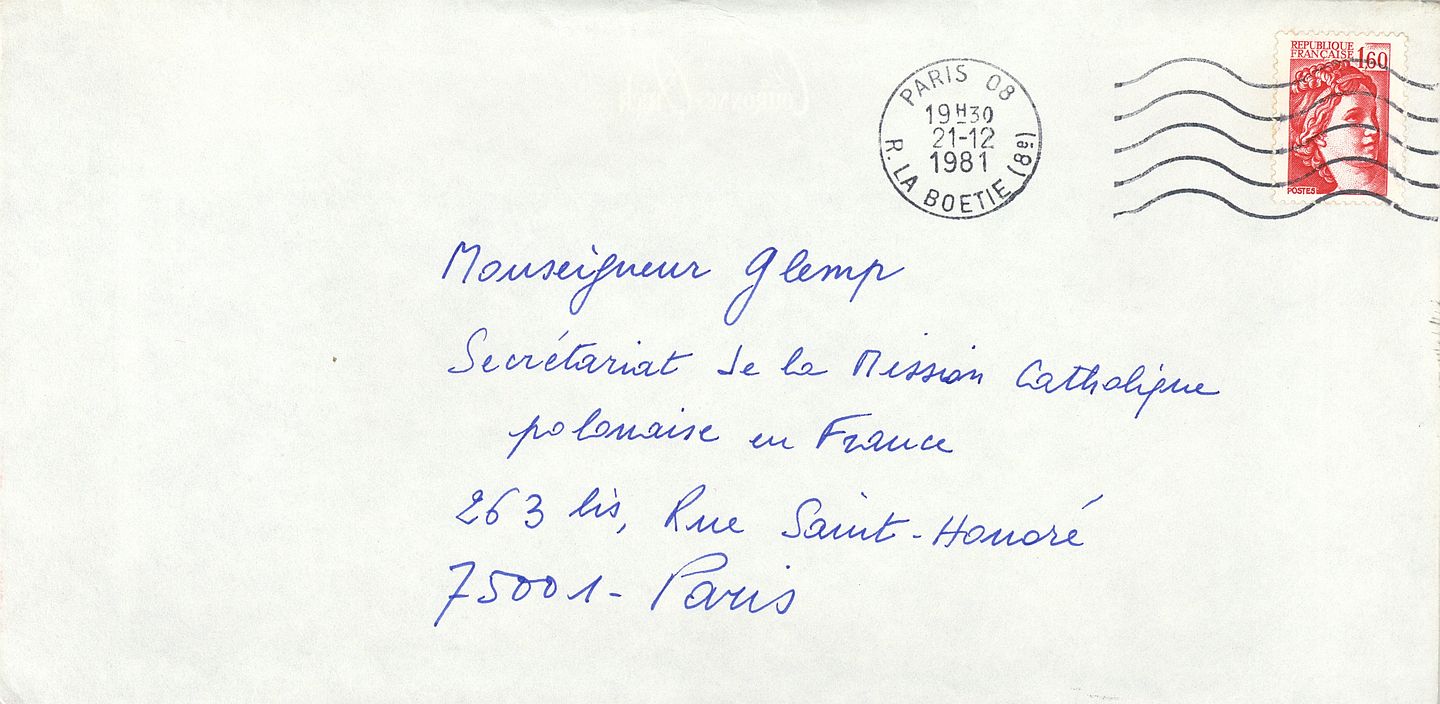 REPUBLIQUE
FRANÇAISE 1,60
POSTES
PARIS 08
19H30
21-12
1981
R. LA BOETIE (8e)
Monseigneur Glemp
Secrétariat de la Mission Catholique
polonaise en France
263 bis, Rue Saint-Honoré
75001 - Paris